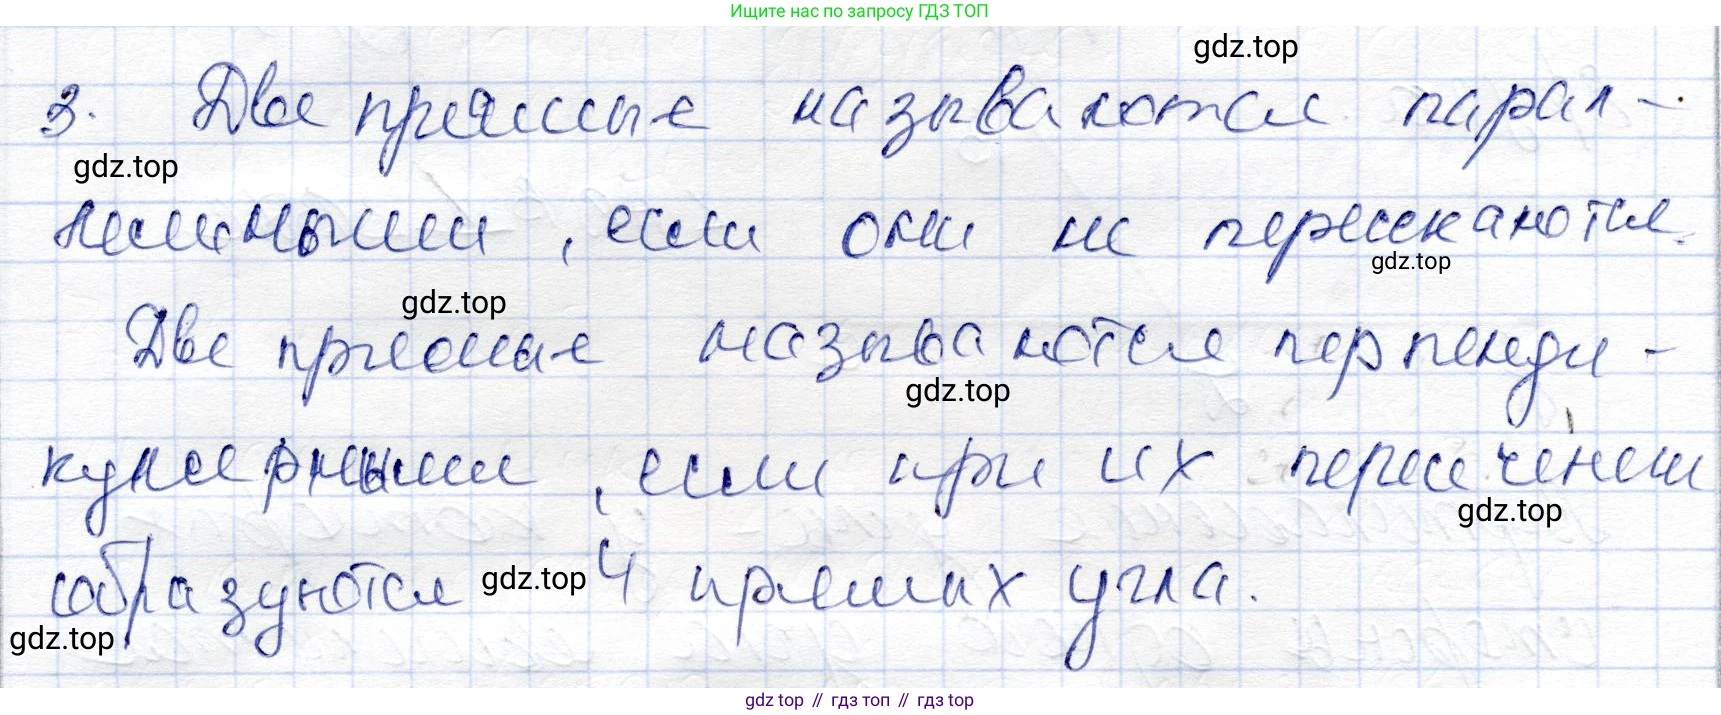 Ищите нас по запросу ГДЗ ТОП
gdz.top
3. Две прямые называются парал-
gdz.top
лельными, если они не пересекаются.
gdz.top
gdz.top
Две прямые называются перпенди-
gdz.top
кулярными, если при их пересечении
gdz.top
образуются 4 прямых угла.
gdz.top
gdz.top
gdz top // гдз топ // gdz top